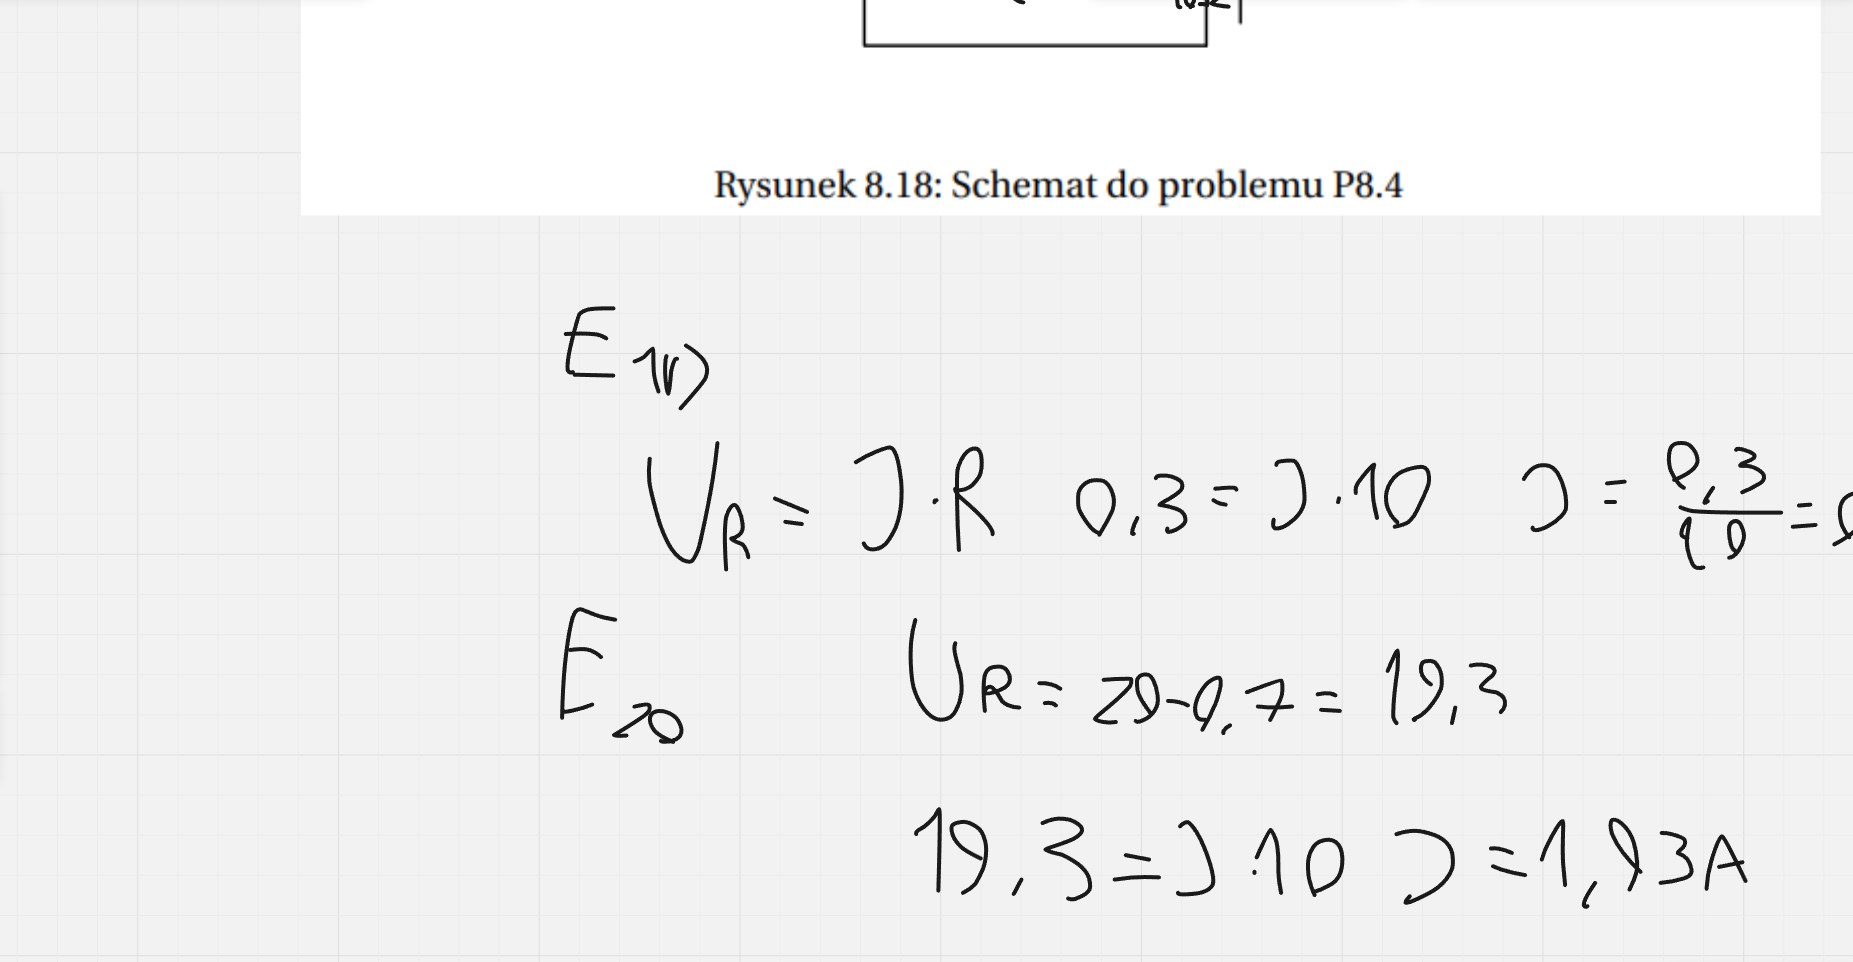 Rysunek 8.18: Schemat do problemu P8.4
E 1V)
U_R = J · R 0,3 = J · 10 J = 0,3/10 = 0
E 20 U_R = 20 - 0,7 = 19,3
19,3 = J · 10 J = 1,93A